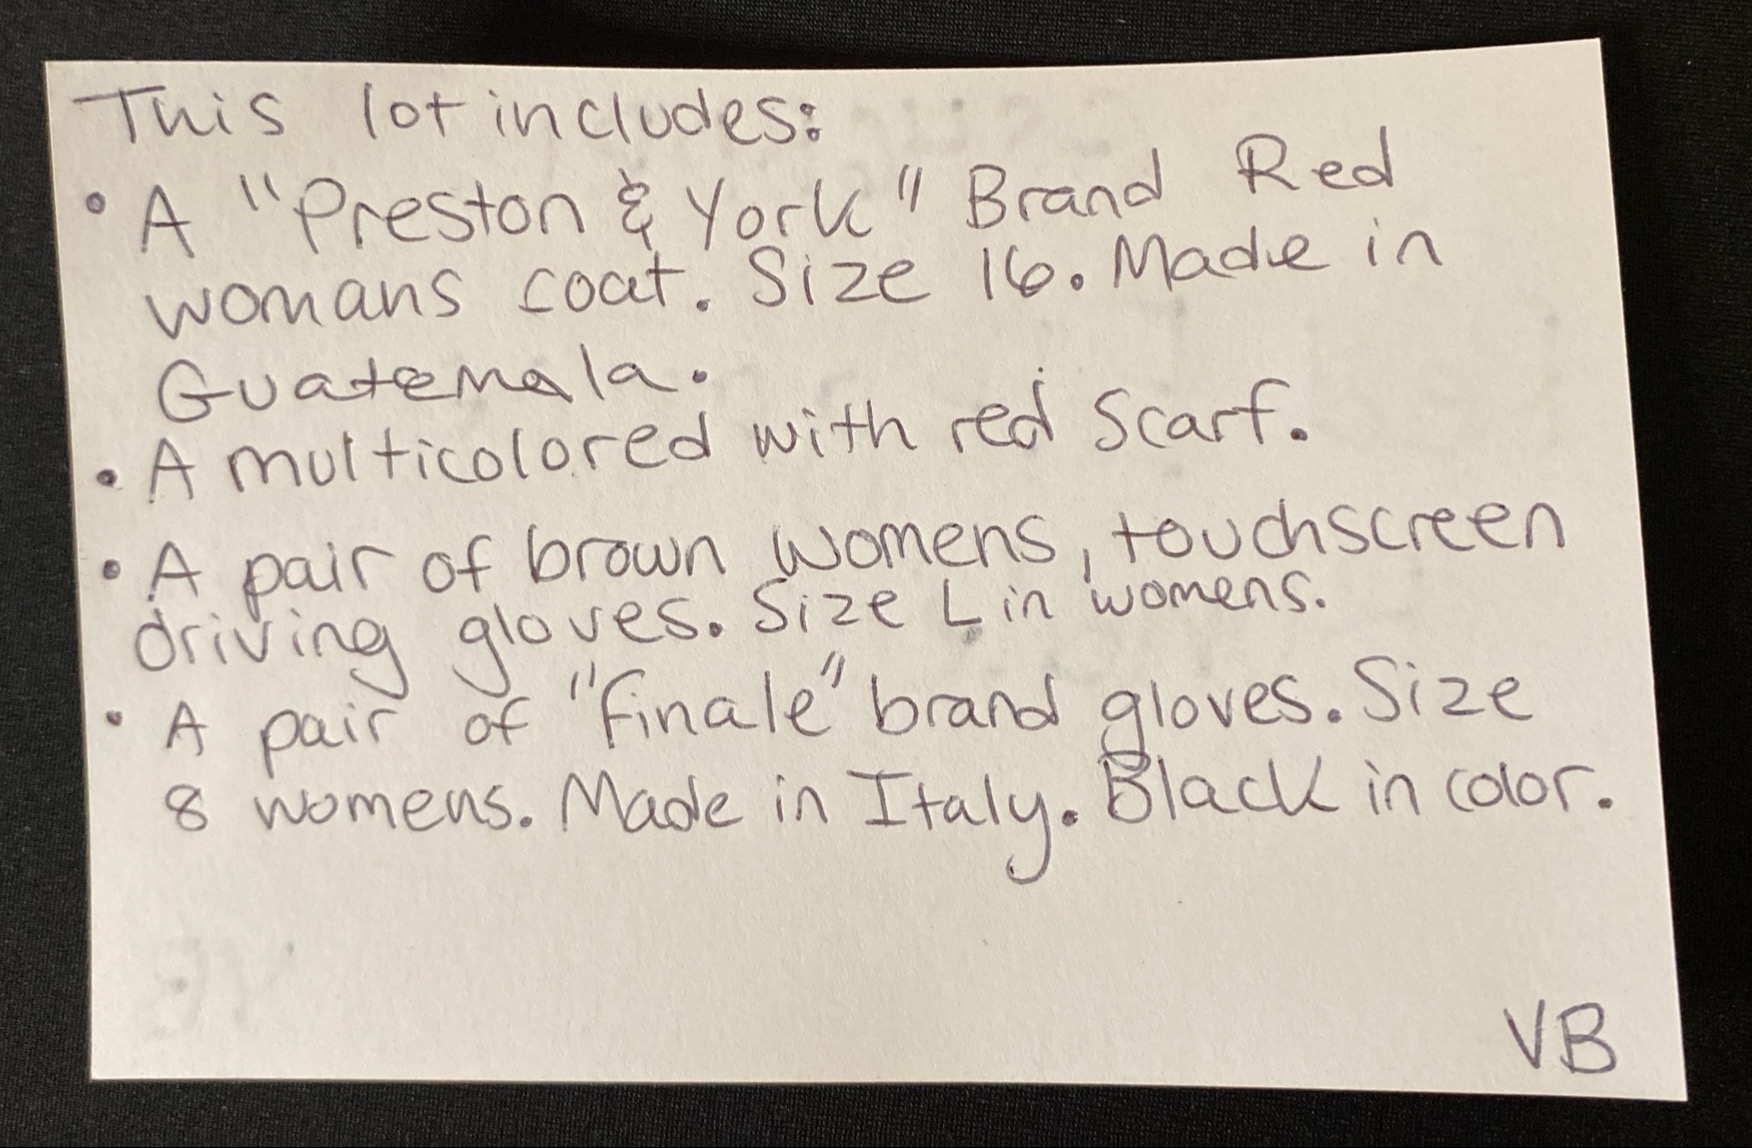 This lot includes:
• A "Preston & York" Brand Red
womans coat. Size 16. Made in
Guatemala.
• A multicolored with red scarf.
• A pair of brown womens, touchscreen
driving gloves. Size L in womens.
• A pair of "finale" brand gloves. Size
8 womens. Made in Italy. Black in color.
VB